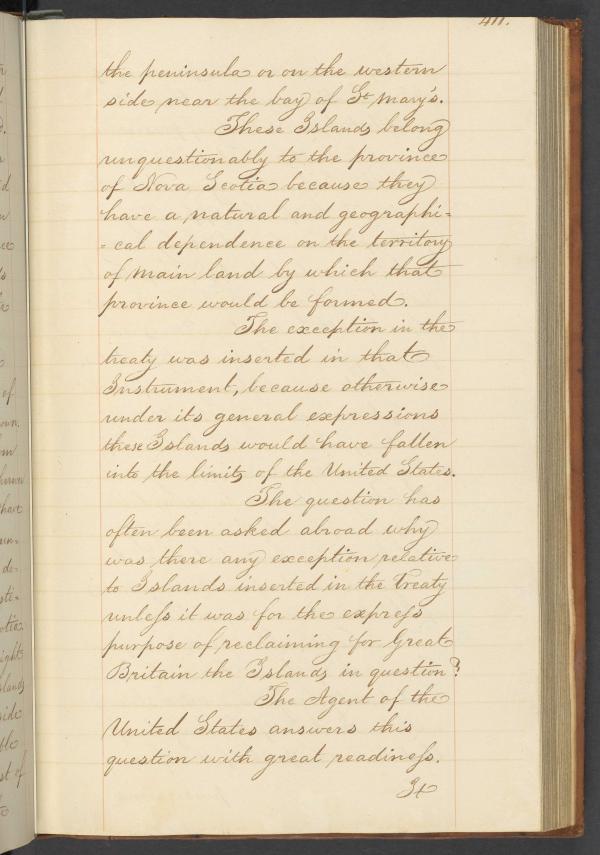 411.
the peninsula or on the western
side near the bay of St Mary's.
These Islands belong
unquestionably to the province
of Nova Scotia because they
have a natural and geographi=
=cal dependence on the territory
of main land by which that
province would be formed.
The exception in the
treaty was inserted in that
Instrument, because otherwise
under its general expressions
these Islands would have fallen
into the limits of the United States.
The question has
often been asked abroad why
was there any exception relative
to Islands inserted in the treaty
unless it was for the express
purpose of reclaiming for Great
Britain the Islands in question?
The Agent of the
United States answers this
question with great readiness.
It